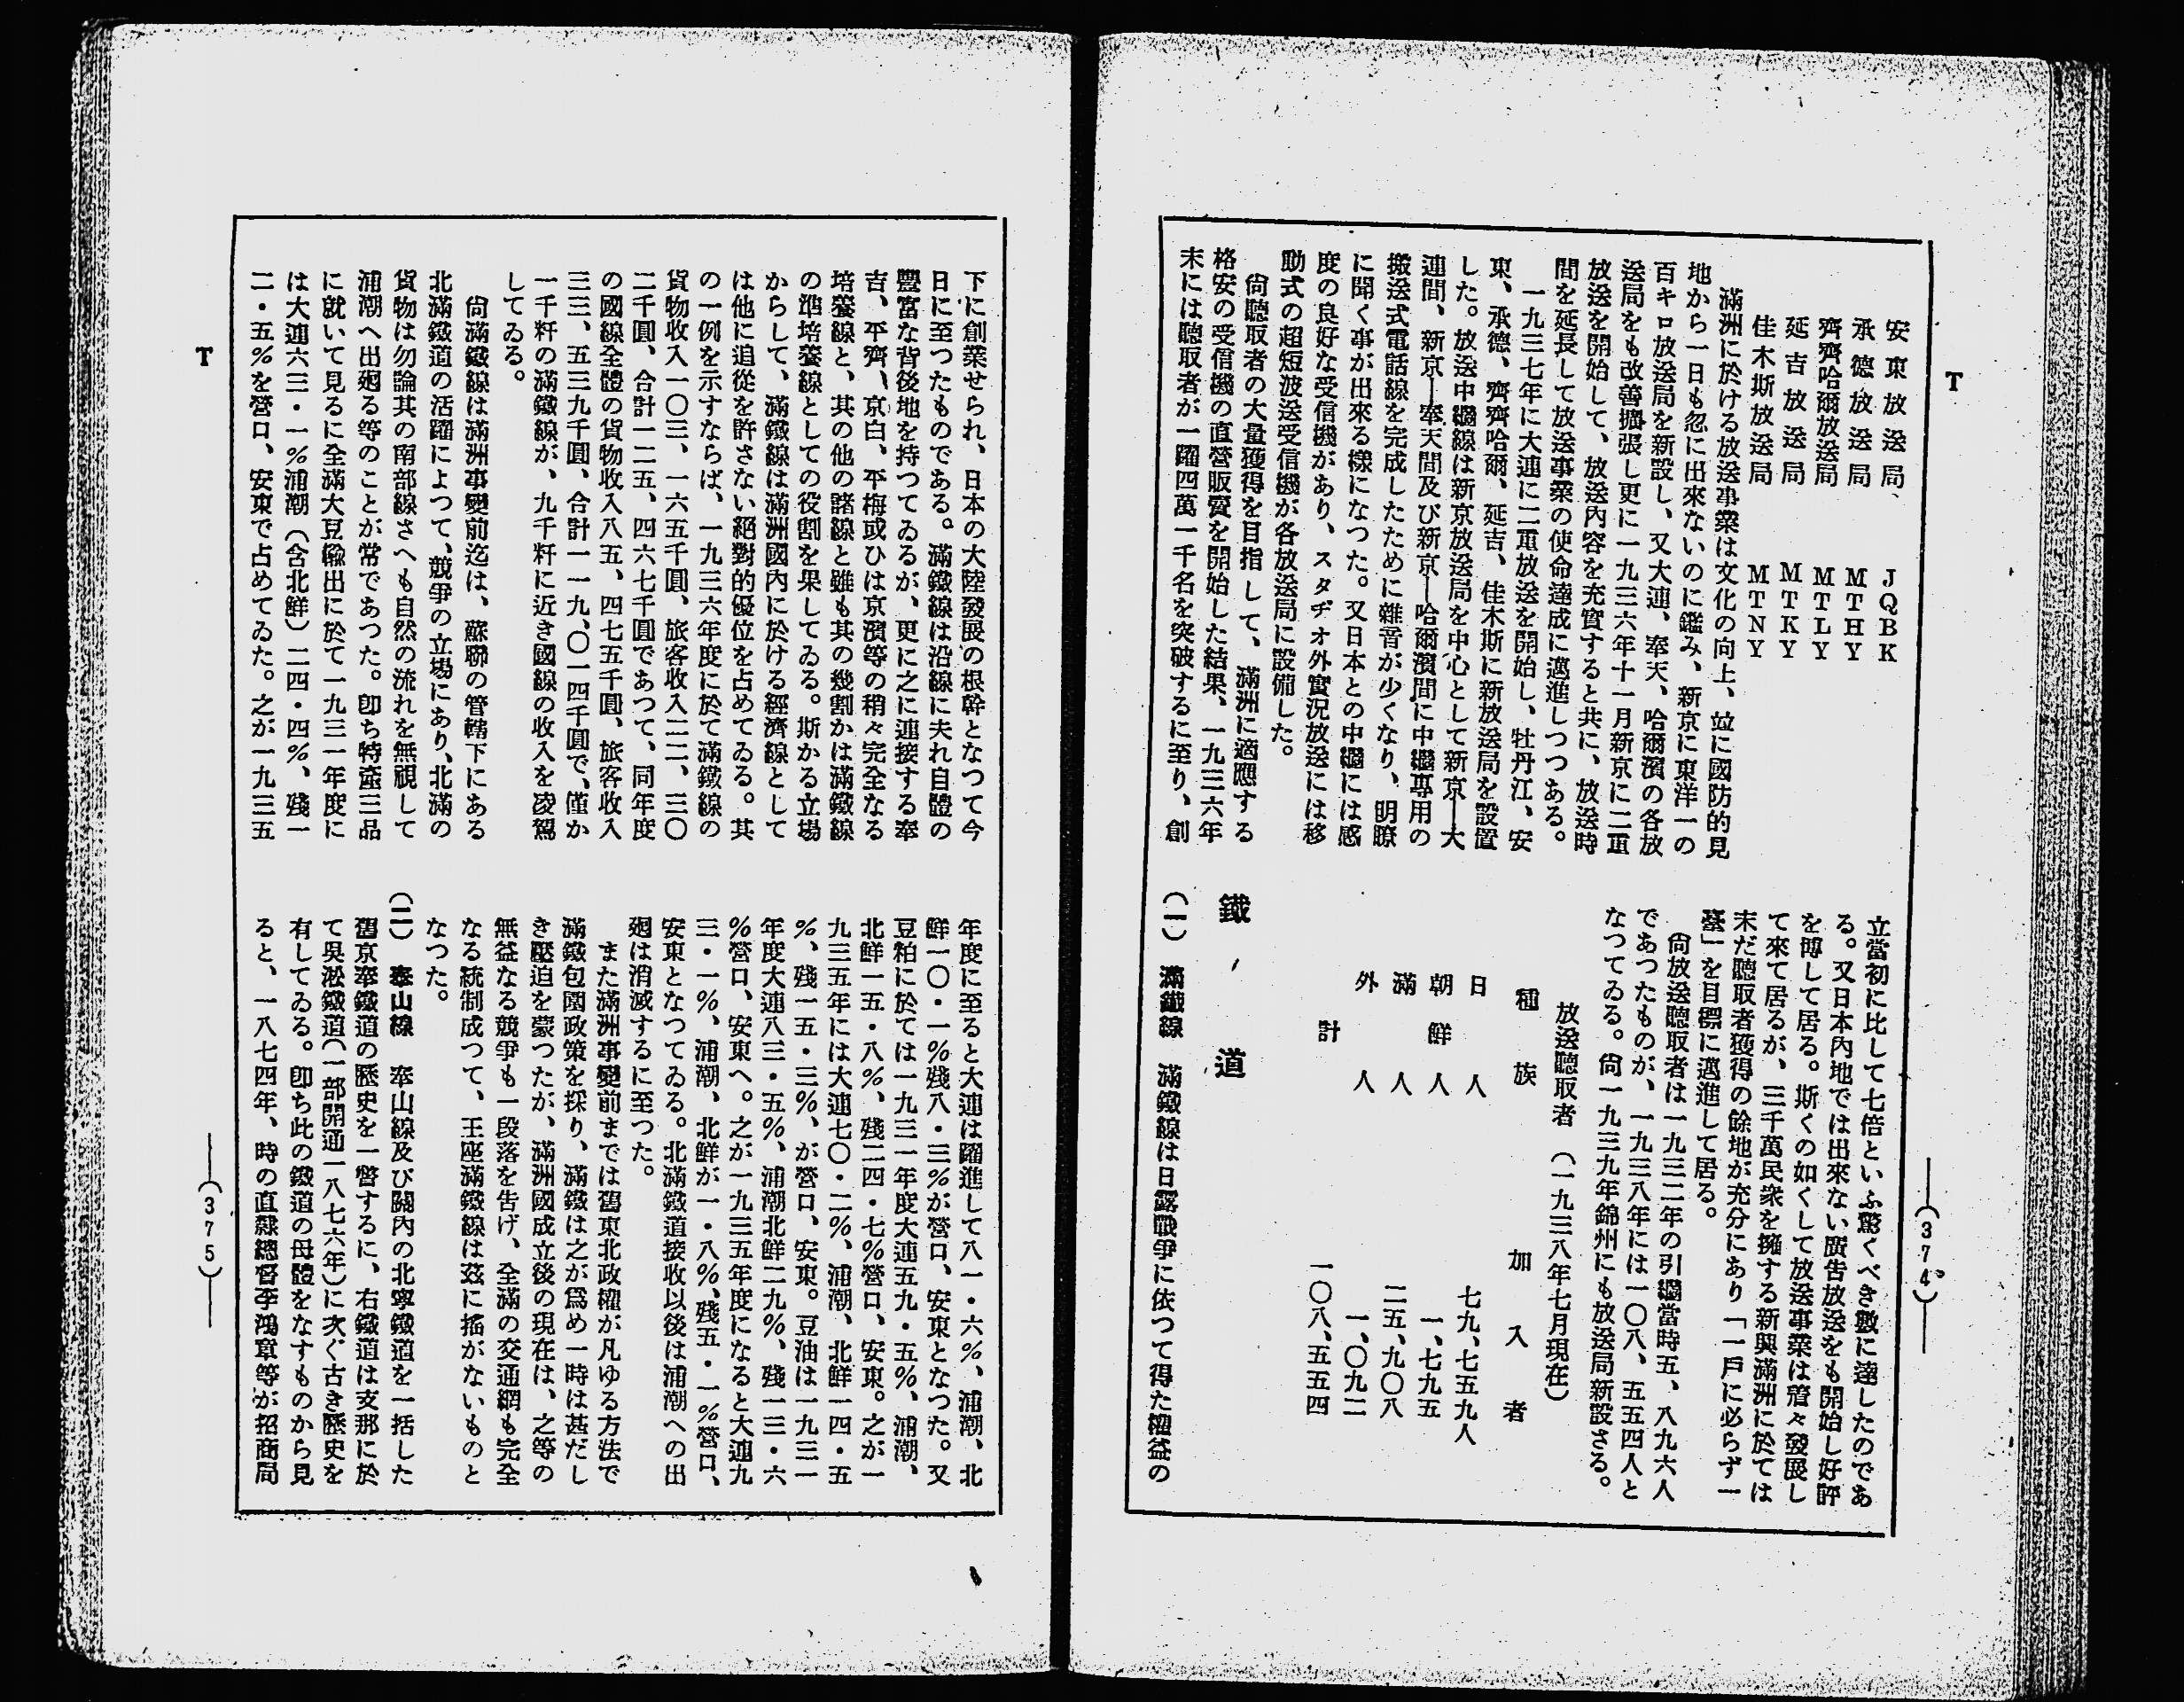 T
安東放送局、 JQBK
承德放送局 MTHY
齊齊哈爾放送局 MTLY
延吉放送局 MTKY
佳木斯放送局 MTNY
滿洲に於ける放送事業は文化の向上、竝に國防的見
地から一日も忽に出來ないのに鑑み、新京に東洋一の
百キロ放送局を新設し、又大連、奉天、哈爾濱の各放
送局をも改善擴張し更に一九三六年十一月新京に二重
放送を開始して、放送內容を充實すると共に、放送時
間を延長して放送事業の使命達成に邁進しつつある。
一九三七年に大連に二重放送を開始し、牡丹江、安
東、承德、齊齊哈爾、延吉、佳木斯に新放送局を設置
した。放送中繼線は新京放送局を中心として新京―大
連間、新京―奉天間及び新京―哈爾濱間に中繼專用の
搬送式電話線を完成したために雜音が少くなり、明瞭
に聞く事が出來る樣になつた。又日本との中繼には感
度の良好な受信機があり、スタヂオ外實況放送には移
動式の超短波送受信機が各放送局に設備した。
尙聽取者の大量獲得を目指して、滿洲に適應する
格安の受信機の直營販賣を開始した結果、一九三六年
末には聽取者が一躍四萬一千名を突破するに至り、創
立當初に比して七倍といふ驚くべき數に達したのであ
る。又日本內地では出來ない廣告放送をも開始し好評
を博して居る。斯くの如くして放送事業は着々發展し
て來て居るが、三千萬民衆を擁する新興滿洲に於ては
末だ聽取者獲得の餘地が充分にあり「一戶に必らず一
臺」を目標に邁進して居る。
尙放送聽取者は一九三二年の引繼當時五、八九六人
であつたものが、一九三八年には一〇八、五五四人と
なつてゐる。尙一九三九年錦州にも放送局新設さる。
放送聽取者 （一九三八年七月現在）
種族 加入者
日人 七九、七五九人
朝鮮人 一、七九五
滿人 二五、九〇八
外人 一、〇九二
計 一〇八、五五四
鐵道
（一） 滿鐵線 滿鐵線は日露戰爭に依つて得た權益の
(374)
下に創業せられ、日本の大陸發展の根幹となつて今
日に至つたものである。滿鐵線は沿線に夫れ自體の
豐富な背後地を持つてゐるが、更に之に連接する奉
吉、平齊、京白、平梅或ひは京濱等の稍々完全なる
培養線と、其の他の諸線と雖も其の幾割かは滿鐵線
の準培養線としての役割を果してゐる。斯かる立場
からして、滿鐵線は滿洲國內に於ける經濟線として
は他に追從を許さない絕對的優位を占めてゐる。其
の一例を示すならば、一九三六年度に於て滿鐵線の
貨物收入一〇三、一六五千圓、旅客收入二二、三〇
二千圓、合計一二五、四六七千圓であつて、同年度
の國線全體の貨物收入八五、四七五千圓、旅客收入
三三、五三九千圓、合計一一九、〇一四千圓で、僅か
一千粁の滿鐵線が、九千粁に近き國線の收入を凌駕
してゐる。
尙滿鐵線は滿洲事變前迄は、蘇聯の管轄下にある
北滿鐵道の活躍によつて、競爭の立場にあり、北滿の
貨物は勿論其の南部線さへも自然の流れを無視して
浦潮へ出廻る等のことが常であつた。卽ち特產三品
に就いて見るに全滿大豆輸出に於て一九三一年度に
は大連六三・一％浦潮（含北鮮）二四・四％、殘一
二・五％を營口、安東で占めてゐた。之が一九三五
年度に至ると大連は躍進して八一・六％、浦潮、北
鮮一〇・一％殘八・三％が營口、安東となつた。又
豆粕に於ては一九三一年度大連五九・五％、浦潮、
北鮮一五・八％、殘二四・七％營口、安東。之が一
九三五年には大連七〇・二％、浦潮、北鮮一四・五
％、殘一五・三％、が營口、安東。豆油は一九三一
年度大連八三・五％、浦潮北鮮二九％、殘一三・六
％營口、安東へ。之が一九三五年度になると大連九
三・一％、浦潮、北鮮が一・八％、殘五・一％營口、
安東となつてゐる。北滿鐵道接收以後は浦潮への出
廻は消滅するに至つた。
また滿洲事變前までは舊東北政權が凡ゆる方法で
滿鐵包圍政策を採り、滿鐵は之が爲め一時は甚だし
き壓迫を蒙つたが、滿洲國成立後の現在は、之等の
無益なる競爭も一段落を吿げ、全滿の交通網も完全
なる統制成つて、王座滿鐵線は茲に搖がないものと
なつた。
（二） 奉山線 奉山線及び關內の北寧鐵道を一括した
舊京奉鐵道の歷史を一瞥するに、右鐵道は支那に於
て吳淞鐵道（一部開通一八七六年）に次ぐ古き歷史を
有してゐる。卽ち此の鐵道の母體をなすものから見
ると、一八七四年、時の直隸總督李鴻章等が招商局
T
(375)